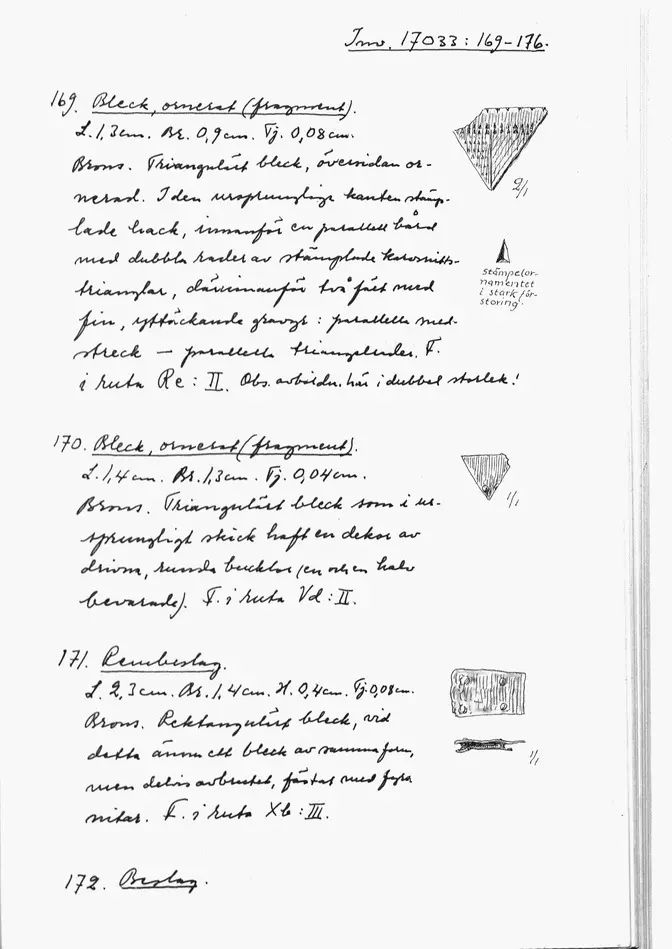 Inv. 17033: 169-176.
169. Bleck, ornerat (fragment).
L. 1,3cm. Br. 0,9cm. Tj. 0,08cm.
Brons. Triangulärt bleck, översidan or-
nerad. I den ursprungliga kanten stämp-
lade hack, innanför en parallell bård
med dubbla rader av stämplade karvsnitts-
trianglar, därinnanför två fält med
fin, yttäckande gravyr: parallella med-
streck — parallella triangelsider. F.
i ruta Re: II. Obs. avbildn. här i dubbel storlek!
2/1
stämpelor-
namentet
i stark för-
storing.
170. Bleck, ornerat (fragment).
L. 1,4cm. Br. 1,3cm. Tj. 0,04cm.
Brons. Triangulärt bleck som i ur-
sprungligt skick haft en dekor av
drivna, runda bucklor (en och en halv
bevarade). F. i ruta Vd: II.
1/1
171. Rembeslag.
L. 2,3cm. Br. 1,4cm. H. 0,4cm. Tj. 0,08cm.
Brons. Rektangulärt bleck, vid
detta ännu ett bleck av samma form,
men delvis avbrutet, fästat med fyra
nitar. F. i ruta Xb: III.
1/1
172. Beslag.